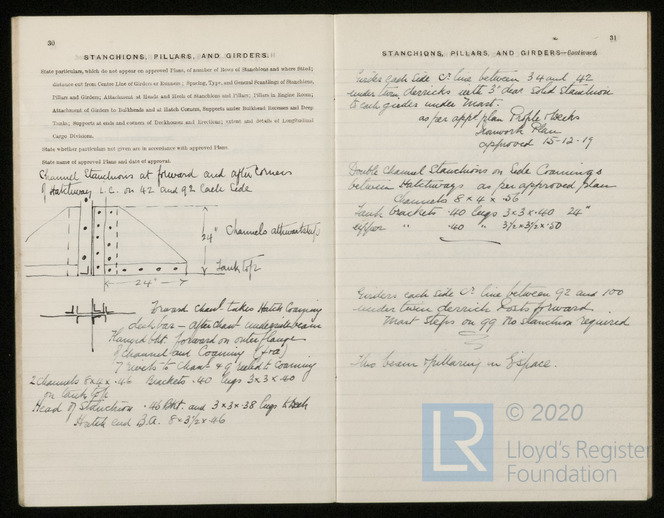 30
STANCHIONS, PILLARS, AND GIRDERS.
State particulars, which do not appear on approved Plans, of number of Rows of Stanchions and where fitted;
distance out from Centre Line of Girders or Runners; Spacing, Type, and General Scantlings of Stanchions,
Pillars and Girders; Attachment at Heads and Heels of Stanchions and Pillars; Pillars in Engine Rooms;
Attachment of Girders to Bulkheads and at Hatch Corners, Supports under Bulkhead Recesses and Deep
Tanks; Supports at ends and corners of Deckhouses and Erections; extent and details of Longitudinal
Cargo Divisions.
State whether particulars not given are in accordance with approved Plans.
State name of approved Plans and date of approval.
Channel Stanchions at forward and after corners
of Hatchway L.C. on 42 and 92 each side
24" Channels athwartships
Tank top
24"
Forward Chanl takes Hatch Coaming
deck bar - after chanl underside beam
forward on outer flange
of Channel and Coaming
7 rivets to Chanl & 9 rivets to Coaming
2 Channels 8 x 4 x .46 Brackets .40 lugs 3 x 3 x .40
on tank top
Head of Stanchion .46 Bkt. and 3 x 3 x .38 lugs to deck
Hatch end B.A. 8 x 3½ x .46
31
STANCHIONS, PILLARS, AND GIRDERS—continued.
Girders each side Cr line between 34 and 42
under twin derricks with 3" diar solid stanchion
to each girder under mast.
as per appd plan Profile & Decks
Ironwork Plan
approved 15-12-19
Double Channel Stanchions on side Coamings
between Hatchways as per approved plan
Channels 8 x 4 x .56
Tank brackets .40 lugs 3 x 3 x .40 24"
upper " .40 " 3½ x 3½ x .50
Girders each side Cr line between 92 and 100
under twin derrick Posts forward
Mast Steps on 99 no stanchion required
beam & pillaring in E space.
© 2020
LR
Lloyd's Register
Foundation